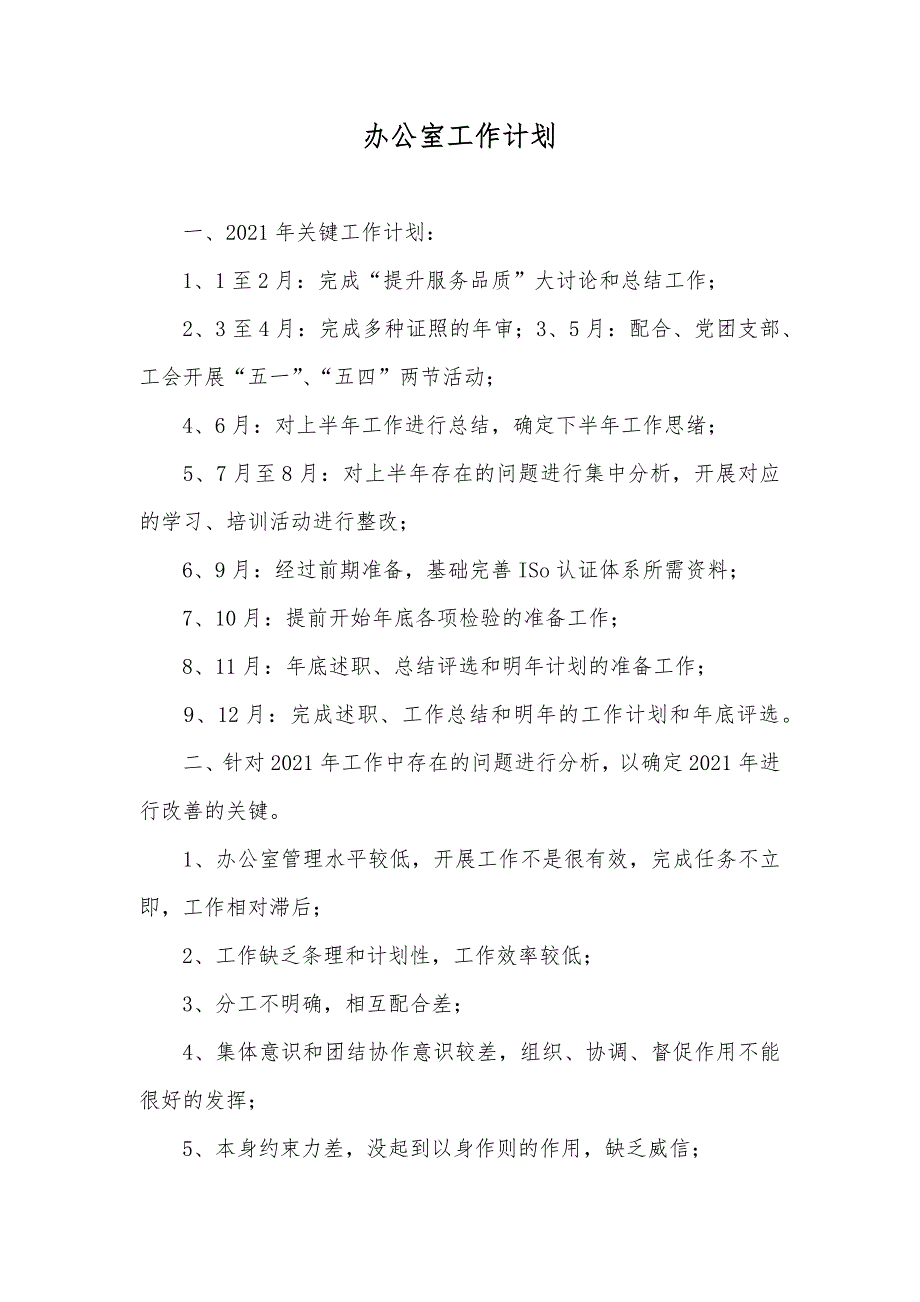 办公室工作计划
一、2021年关键工作计划：
1、1至2月：完成“提升服务品质”大讨论和总结工作；
2、3至4月：完成多种证照的年审；3、5月：配合、党团支部、
工会开展“五一”、“五四”两节活动；
4、6月：对上半年工作进行总结，确定下半年工作思绪；
5、7月至8月：对上半年存在的问题进行集中分析，开展对应
的学习、培训活动进行整改；
6、9月：经过前期准备，基础完善ISo认证体系所需资料；
7、10月：提前开始年底各项检验的准备工作；
8、11月：年底述职、总结评选和明年计划的准备工作；
9、12月：完成述职、工作总结和明年的工作计划和年底评选。
二、针对2021年工作中存在的问题进行分析，以确定2021年进
行改善的关键。
1、办公室管理水平较低，开展工作不是很有效，完成任务不立
即，工作相对滞后；
2、工作缺乏条理和计划性，工作效率较低；
3、分工不明确，相互配合差；
4、集体意识和团结协作意识较差，组织、协调、督促作用不能
很好的发挥；
5、本身约束力差，没起到以身作则的作用，缺乏威信；